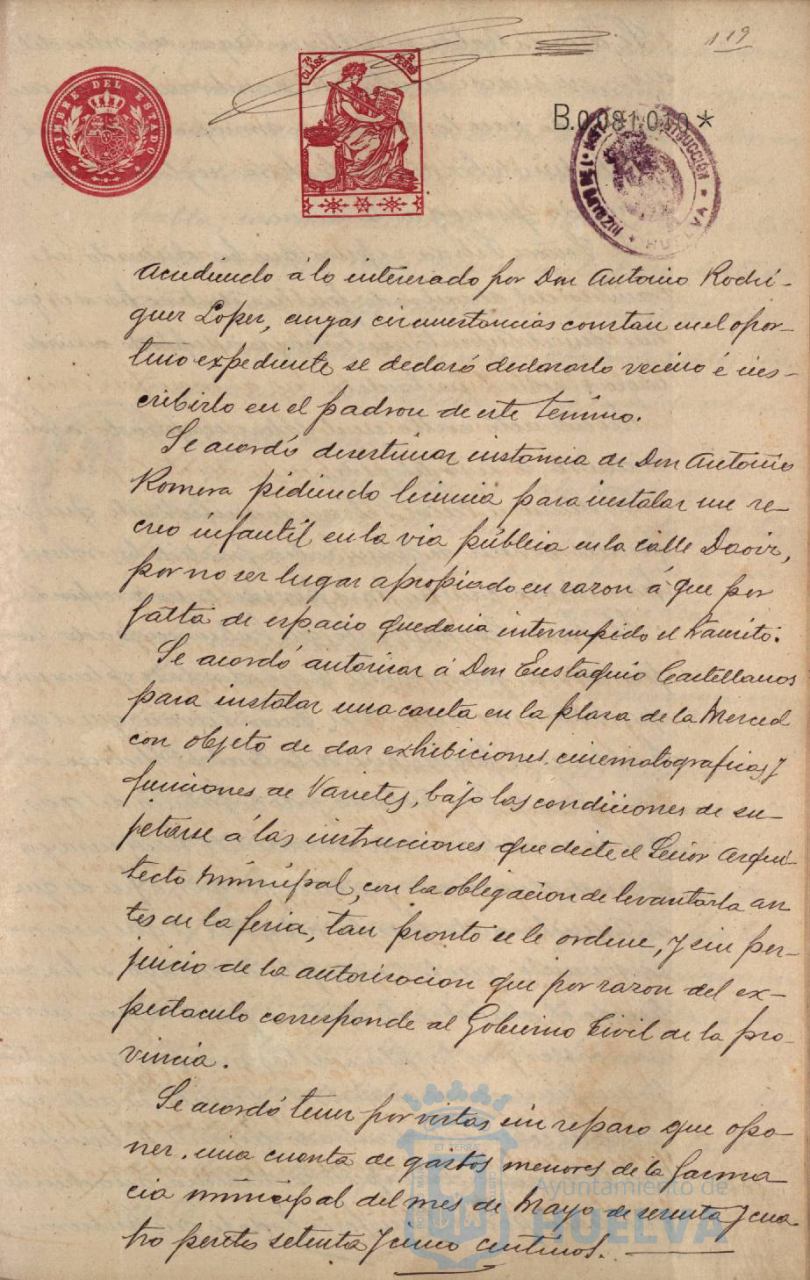 119
TIMBRE DEL ESTADO
7ª CLASE
2 PESETAS
B.0.081.010 *
HUELVA
Acudiendo á lo interesado por Don Antonio Rodri-
guez Lopez, cuyas circunstancias constan en el opor-
tuno expediente se declaró declararlo vecino é ins-
cribirlo en el padron de este termino.
Se acordó desestimar instancia de Don Antonio
Romera pidiendo licencia para instalar un re-
creo infantil en la via pública en la calle Daoiz,
por no ser lugar apropiado en razon á que por
falta de espacio quedaria interrumpido el transito.
Se acordó autorizar á Don Eustaquio Castellanos
para instalar una caseta en la plaza de la Merced
con objeto de dar exhibiciones cinematograficas y
funciones de Varietes, bajo las condiciones de su-
jetarse á las instrucciones que dicte el Señor Arqui-
tecto Municipal, con la obligacion de levantarla an
tes de la feria, tan pronto se le ordene, y sin per-
juicio de la autorizacion que por razon del ex-
pectaculo corresponde al Gobierno Civil de la pro-
vincia.
Se acordó tener por vistas sin reparo que opo-
ner, una cuenta de gastos menores de la farma
cia municipal del mes de Mayo de sesenta y cua-
tro pesetas setenta y cinco centimos.
Ayuntamiento de
HUELVA